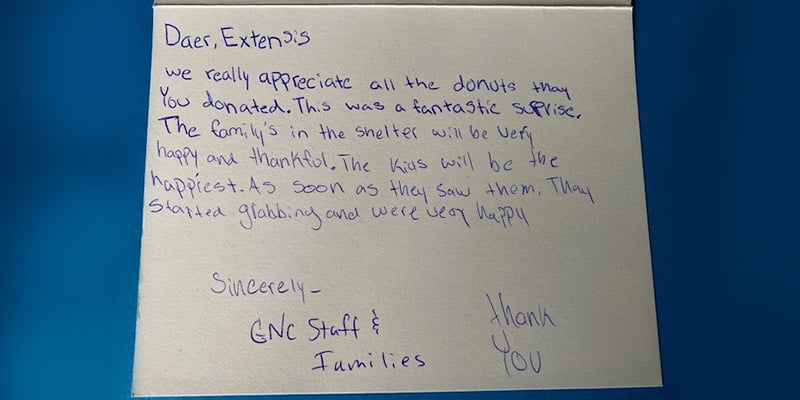 Daer, Extensis
we really appreciate all the donuts thay
You donated. This was a fantastic suprise.
The family's in the shelter will be very
happy and thankful. The kids will be the
happiest. As soon as they saw them. Thay
started grabbing and were very happy
Sincerely-
GNC Staff &
Families
thank
You